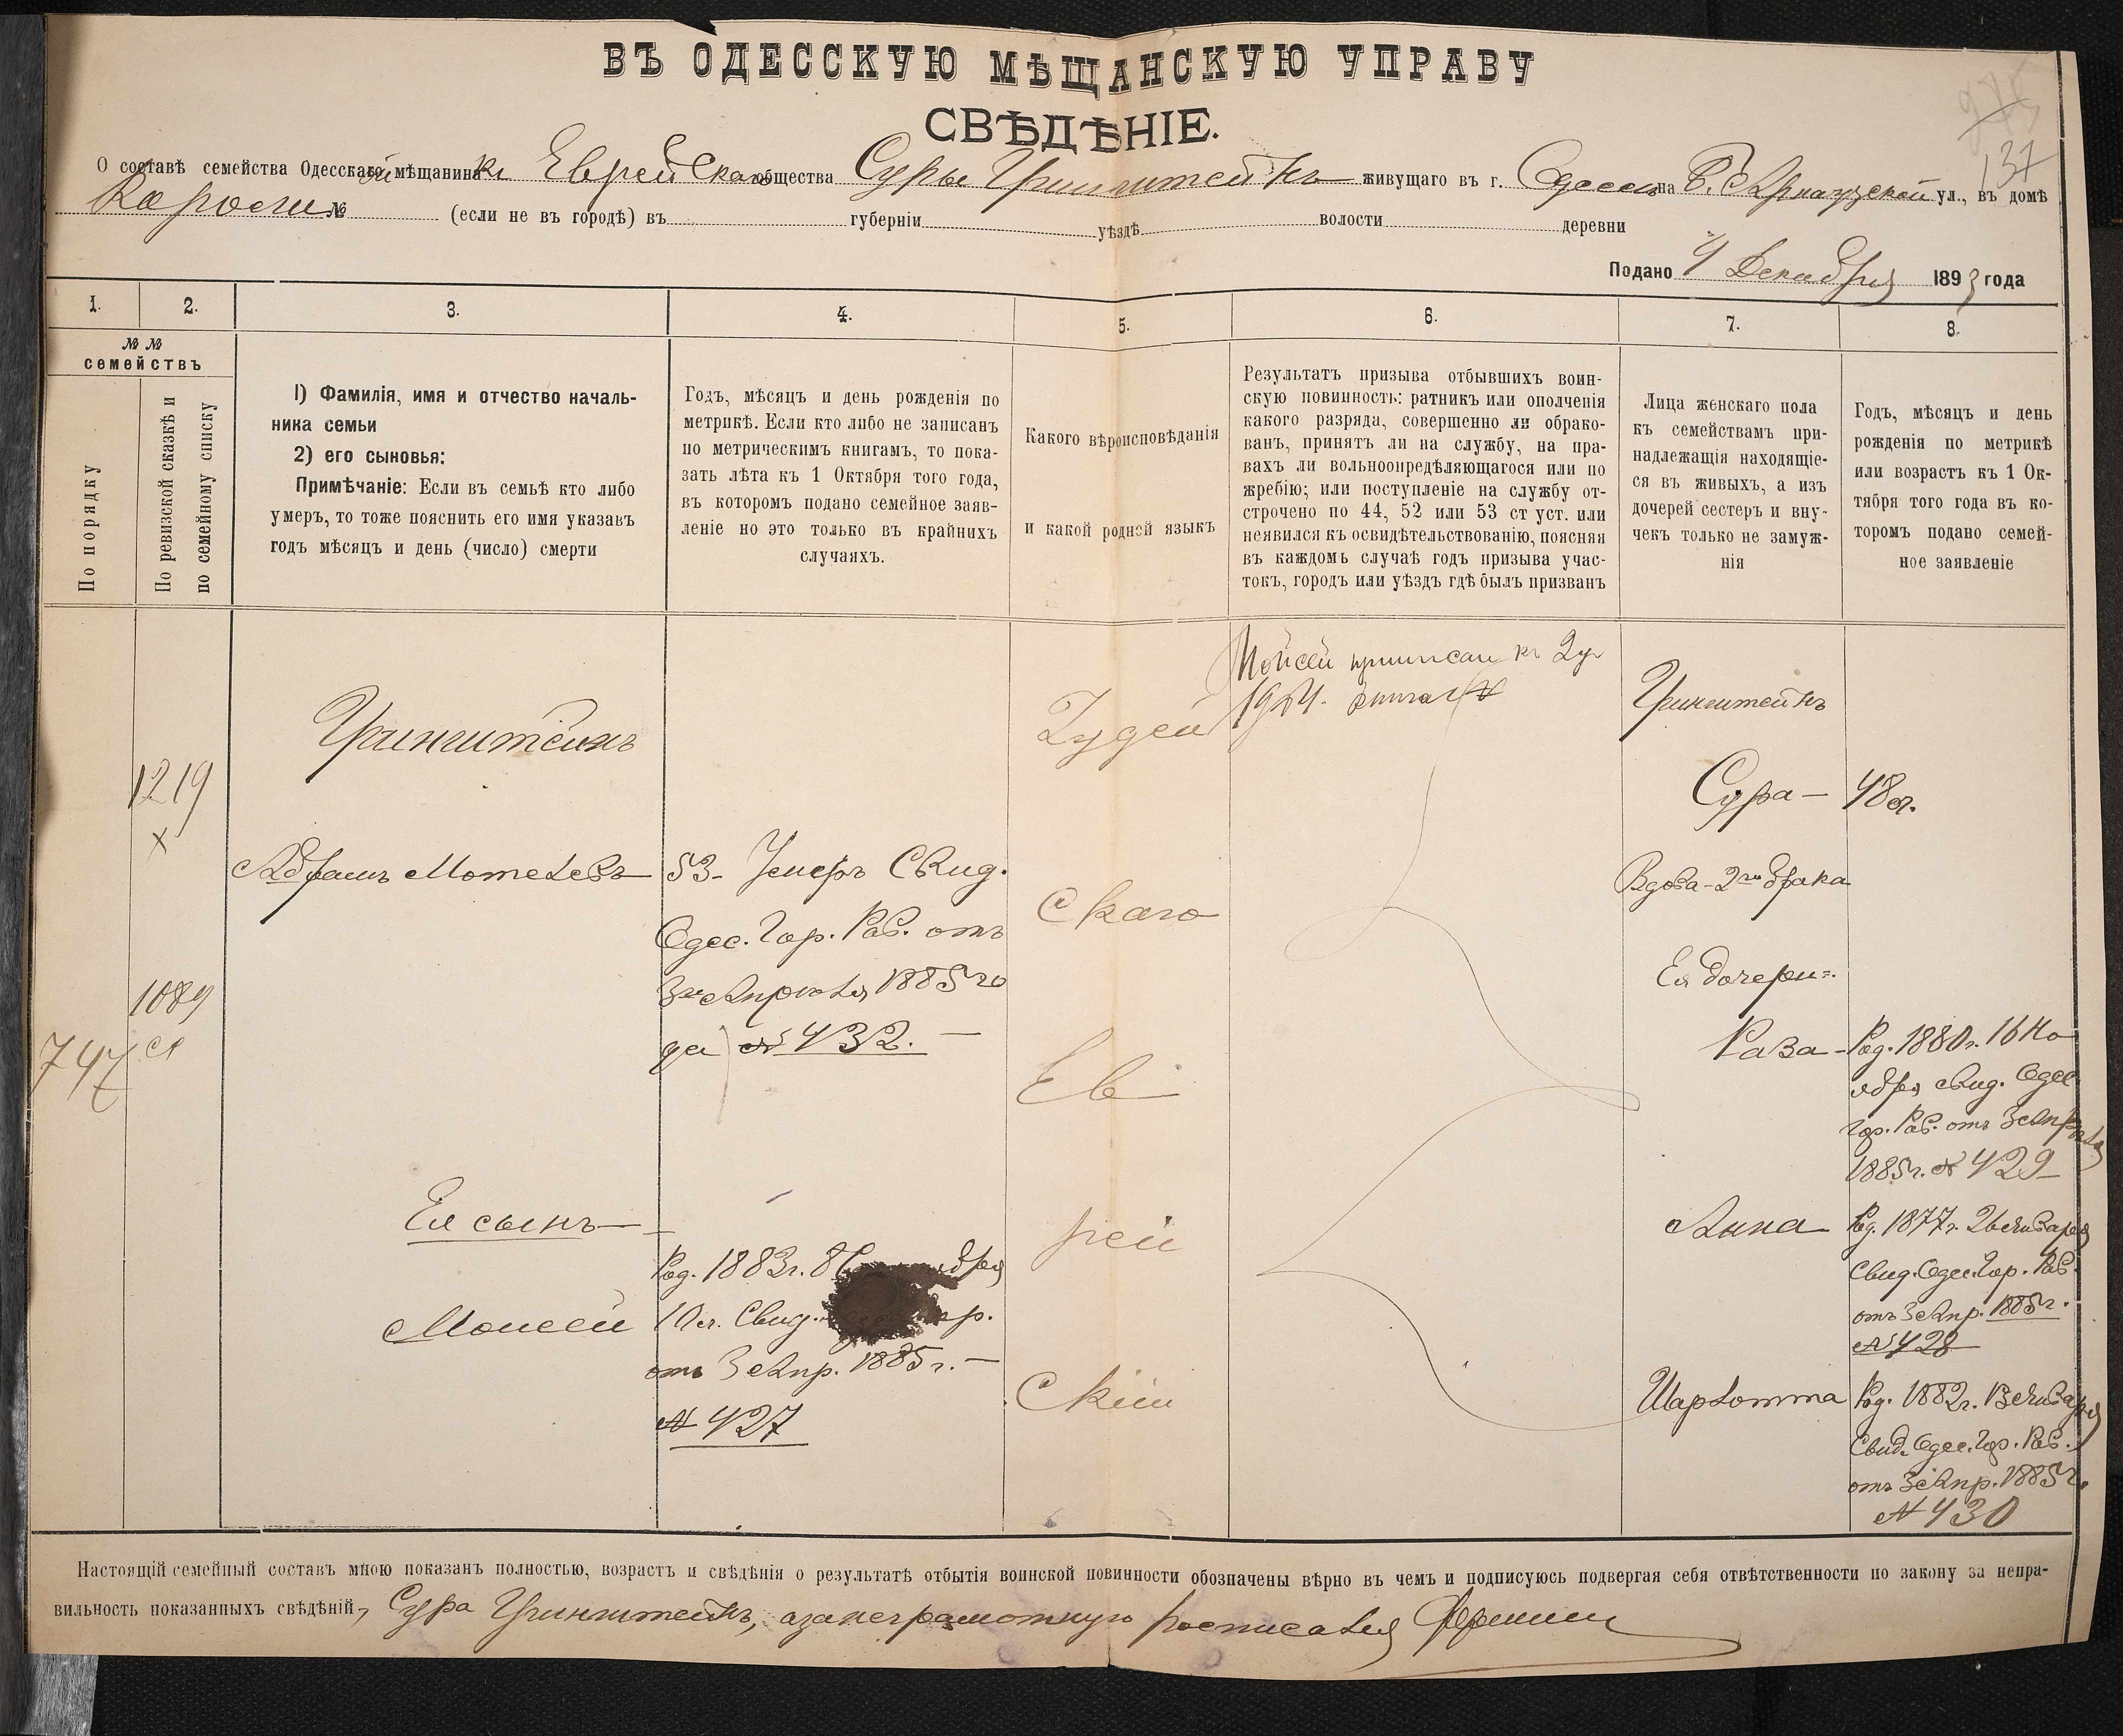 ВЪ ОДЕССКУЮ МѢЩАНСКУЮ УПРАВУ
СВѢДѢНІЕ.
137
О составѣ семейства Одесской мѣщанки Еврейскаго общества Суры Гринштейнъ живущаго въ г. Одессѣ на Б. Арнаутской ул., въ домѣ
№ (если не въ городѣ) въ губерніи уѣздѣ волости деревни
Подано 4 Декабря 1893 года
1. 2. 3. 4. 5. 6. 7. 8.
№ № семействъ
По порядку
По ревизской сказкѣ и по семейному списку
1) Фамилія, имя и отчество началь-
ника семьи
2) его сыновья:
Примѣчаніе: Если въ семьѣ кто либо
умеръ, то тоже пояснить его имя указавъ
годъ мѣсяцъ и день (число) смерти
Годъ, мѣсяцъ и день рожденія по
метрикѣ. Если кто либо не записанъ
по метрическимъ книгамъ, то пока-
зать лѣта къ 1 Октября того года,
въ которомъ подано семейное заяв-
леніе но это только въ крайнихъ
случаяхъ.
Какого вѣроисповѣданія
и какой родной языкъ
Результатъ призыва отбывшихъ воин-
скую повинность: ратникъ или ополченія
какого разряда, совершенно ли обрако-
ванъ, принятъ ли на службу, на пра-
вахъ ли вольноопредѣляющагося или по
жребію; или поступленіе на службу от-
строчено по 44, 52 или 53 ст уст. или
неявился къ освидѣтельствованію, поясняя
въ каждомъ случаѣ годъ призыва учас-
токъ, городъ или уѣздъ гдѣ былъ призванъ
Лица женскаго пола
къ семействамъ при-
надлежащія находящіе-
ся въ живыхъ, а изъ
дочерей сестеръ и вну-
чекъ только не замуж-
нія
Годъ, мѣсяцъ и день
рожденія по метрикѣ
или возрастъ къ 1 Ок-
тября того года въ ко-
торомъ подано семей-
ное заявленіе
747
1219
х
1089
Гринштейнъ
Абрамъ Мотелевъ
Ея сынъ
Моисей
53 - Умеръ Свид.
Одес. Гор. Раб. отъ
3го Апрѣля 1885 го
да № 432. —
Род. 1883 г.
10 л. Свид.
отъ 3 Апр. 1885 г. —
№ 427
Іудей
скаго
Ев
рей
скій
Мойсей приписан къ
Гринштейнъ
Сура — 48 л.
Вдова - 2го брака
Ея дочери =
Раза - Род. 1880 г. 16 Но
ября свид. Одес.
Гор. Раб. отъ 3 Апрѣля
1885 г. № 429 —
Анна Род. 1877 г. 26 Января
Свид. Одес. Гор. Раб.
отъ 3 Апр. 1885 г.
№ 428
Шарлотта Род. 1882 г. 13 Января
Свид. Одес. Гор. Раб.
отъ 3 Апр. 1885 г.
№ 430
Настоящій семейный составъ мною показанъ полностью, возрастъ и свѣдѣнія о результатѣ отбытія воинской повинности обозначены вѣрно въ чемъ и подписуюсь подвергая себя отвѣтственности по закону за непра-
вильность показанныхъ свѣдѣній, Сура Гринштейнъ, а за неграмотную росписался